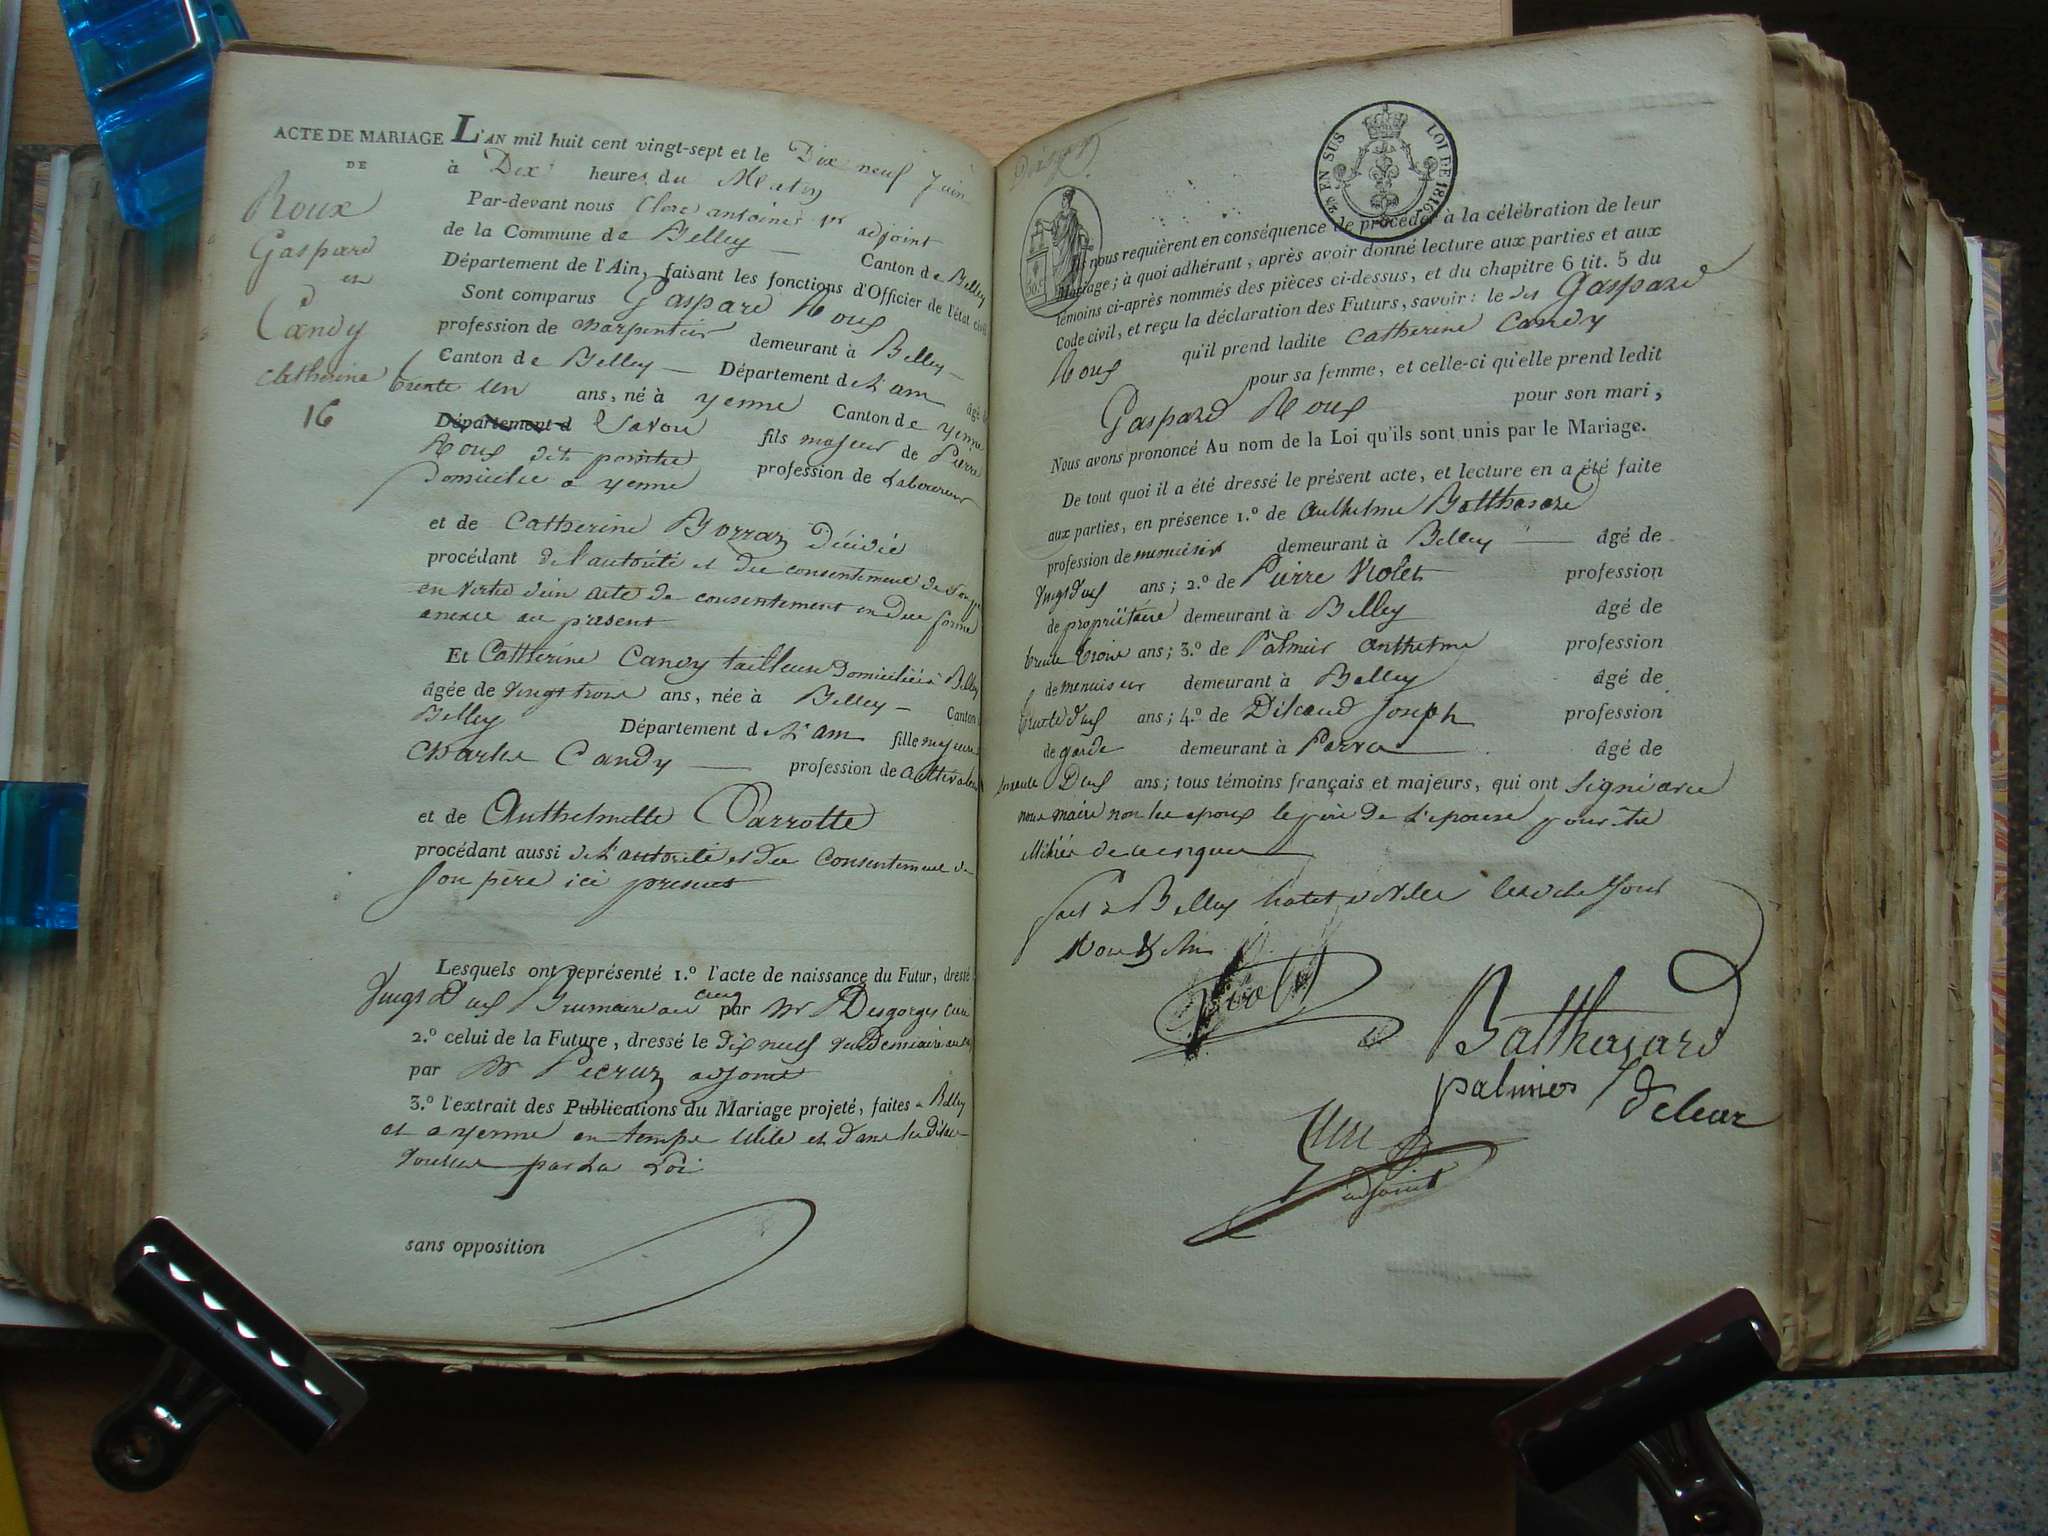 ACTE DE MARIAGE
DE
Roux
Gaspard
et
Candy
Catherine
16
L'AN mil huit cent vingt-sept et le Dix neuf Juin
à Dix heures du Matin
Par-devant nous Clerc antoine 1er adjoint
de la Commune de Belley Canton de Belley
Département de l'Ain, faisant les fonctions d'Officier de l'état civil
Sont comparus Gaspard Roux
profession de charpentier demeurant à Belley
Canton de Belley Département de L'ain âgé de
trente un ans, né à yenne Canton de yenne
Département d Savoie fils majeur de Pierre
Roux dit profession de Laboureur
Domicilié a yenne
et de Catherine Borraz Décédée
procédant de l'autorité et du consentement de
en vertu d'un acte de consentement en due forme
annexé au présent
Et Catherine Candy tailleuse Domiciliée à Belley
âgée de vingt trois ans, née à Belley Canton
Belley Département de L'ain fille majeure
Charles Candy profession de Cultivateur
et de Anthelmette Parrotte
procédant aussi de L'autorité et du Consentement de
son père ici présent
Lesquels ont représenté 1.º l'acte de naissance du Futur, dressé
Vingt Deux Brumaire an cinq par Mr Desgorges
2.º celui de la Future, dressé le dix neuf vendemiaire
par Mr adjoint
3.º l'extrait des Publications du Mariage projeté, faites a Belley
et a yenne en temps utile et dans les délais
voulus par La Loi
sans opposition
25 EN SUS LOI DE 1816.
Ils nous requièrent en conséquence de procéder à la célébration de leur
Mariage; à quoi adhérant, après avoir donné lecture aux parties et aux
témoins ci-après nommés des pièces ci-dessus, et du chapitre 6 tit. 5 du
Code civil, et reçu la déclaration des Futurs, savoir: le dit Gaspard
Roux qu'il prend ladite Catherine Candy
pour sa femme, et celle-ci qu'elle prend ledit
Gaspard Roux pour son mari,
Nous avons prononcé Au nom de la Loi qu'ils sont unis par le Mariage.
De tout quoi il a été dressé le présent acte, et lecture en a été faite
aux parties, en présence 1.º de Anthelme Balthasard
profession de menuisier demeurant à Belley âgé de
ans; 2.º de Pierre Violet profession
de propriétaire demeurant à Belley âgé de
trente trois ans; 3.º de Palmier Anthelme profession
de menuisier demeurant à Belley âgé de
ans; 4.º de Joseph profession
de garde demeurant à Parves âgé de
ans; tous témoins français et majeurs, qui ont signé avec
nous maire non les epoux le père de L'epouse pour être
illitérés de ce enquis
fait à Belley hotel de Ville les dits jour
mois & an
Violet
Balthasard
palmier
Clerc
adjoint